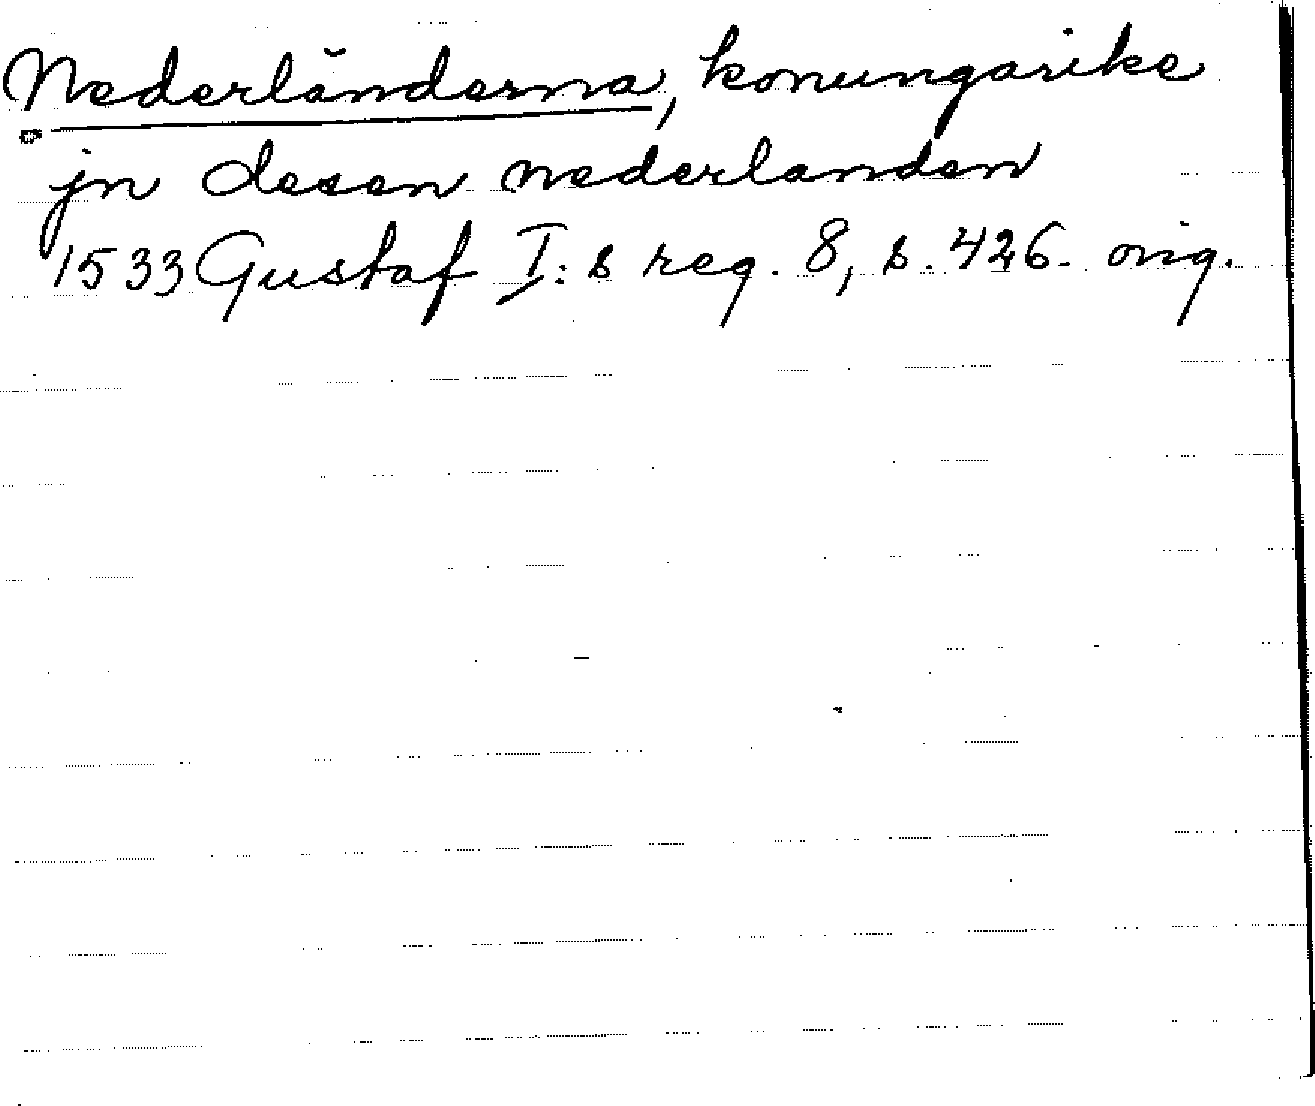 Nederländerna, konungarike
jn desen nederlanden
1533 Gustaf I:s reg. 8, s. 426. orig.